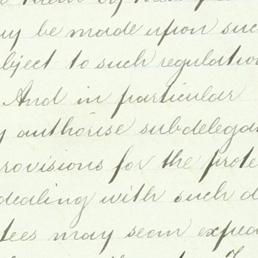 may be made upon such
subject to such regulation
And in particular
authorise subdelega
provisions for the prote
dealing with such d
tees may seem exped